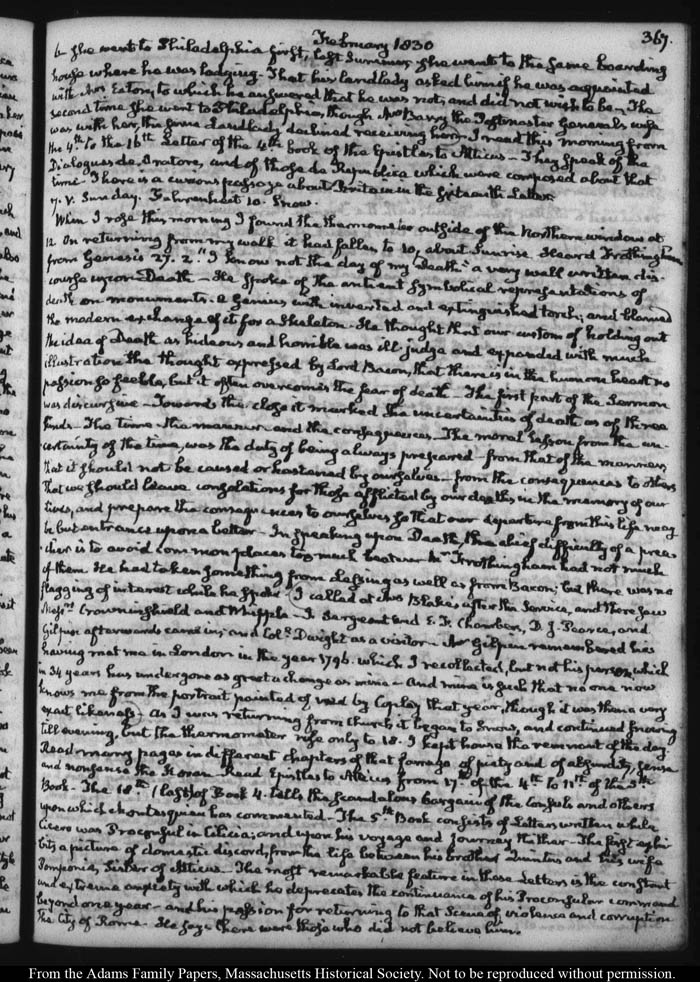 February 1830
367.
6. She went to Philadelphia first, last Summer, she went to the same boarding
house where he was lodging. That his landlady asked him if he was acquainted
with Mrs Eaton, to which he answered that he was not, and did not wish to be. The
second time she went to Philadelphia, though Mrs Barry the Postmaster General's wife
was with her, the same Landlady declined receiving her. I read this morning from
the 4th to the 16th Letter of the 4th book of the Epistles to Atticus. They speak of the
Dialogues de Oratore, and of those de Republica which were composed about that
time. There is a curious passage about Britain in the fifteenth Letter.
7. V. Sunday. Fahrenheit 10. Snow.
When I rose this morning I found the thermometer outside of the Northern window at
12. On returning from my walk it had fallen to 10, about Sunrise. Heard Frothingham
from Genesis 27. 2. "I know not the day of my Death" a very well written dis-
course upon Death. He spoke of the antient symbolical representations of
death on monuments. a Genius with inverted and extinguished torch; and blamed
the modern exchange of it for a skeleton. He thought that our custom of holding out
the idea of Death as hideous and horrible was ill judged and expanded with much
illustration the thought expressed by Lord Bacon, that there is in the human heart no
passion so feeble, but it often overcomes the fear of death. The first part of the Sermon
was discursive. Towards the close it marked the uncertainties of death as of three
kinds. The time, the manner and the consequences. The moral lesson from the un-
certainty of the time, was the duty of being always prepared. from that of the manner,
that it should not be caused or hastened by ourselves. from the consequences to others
that we should leave consolations for those afflicted by our deaths in the memory of our
lives, and prepare the consequences to ourselves so that our departure from this life may
be but entrance upon a better. In speaking upon Death, the chief difficulty of a prea-
cher is to avoid common places too much beaten. Mr Frothingham had not much
of them. He had taken something from Lessing as well as from Bacon; but there was no
flagging of interest while he spoke. I called at Mrs Blake's after the Service, and there saw
Messrs Crowninshield and J. Sergeant and E. F. Chambers, D. J. Pearce, and
Gilpin afterwards came in; and Col. Dwight as a visitor. Mr Gilpin remembered his
having met me in London in the year 1796. which I recollected, but not his person, which
in 34 years has undergone as great a change as mine. And mine is such that no one now
knows me from the portrait painted of me by Copley that year, though it was then a very
exact likeness. As I was returning from church it began to snow, and continued snowing
till evening, but the thermometer rose only to 18. I kept house the remnant of the day.
Read many pages in different chapters of that farrago of piety and of absurdity, sense
and nonsense the Koran. Read Epistles to Atticus from 17th of the 4th to 11th of the 5th
Book. The 18th (last) of Book 4. tells the scandalous bargain of the Consuls and others
upon which Montesquieu has commented. The 5th Book consists of Letters written while
Cicero was Proconsul in Cilicia; and upon his voyage and journey thither. The first exhi-
bits a picture of domestic discord, from the life between his brother Quintus and his wife
Pomponia, Sister of Atticus. The most remarkable feature in these Letters is the constant
and extreme anxiety with which he deprecates the continuance of his Proconsular command
beyond one year. and his passion for returning to that Scene of violence and corruption
the City of Rome. He says there were those who did not believe him.
From the Adams Family Papers, Massachusetts Historical Society. Not to be reproduced without permission.